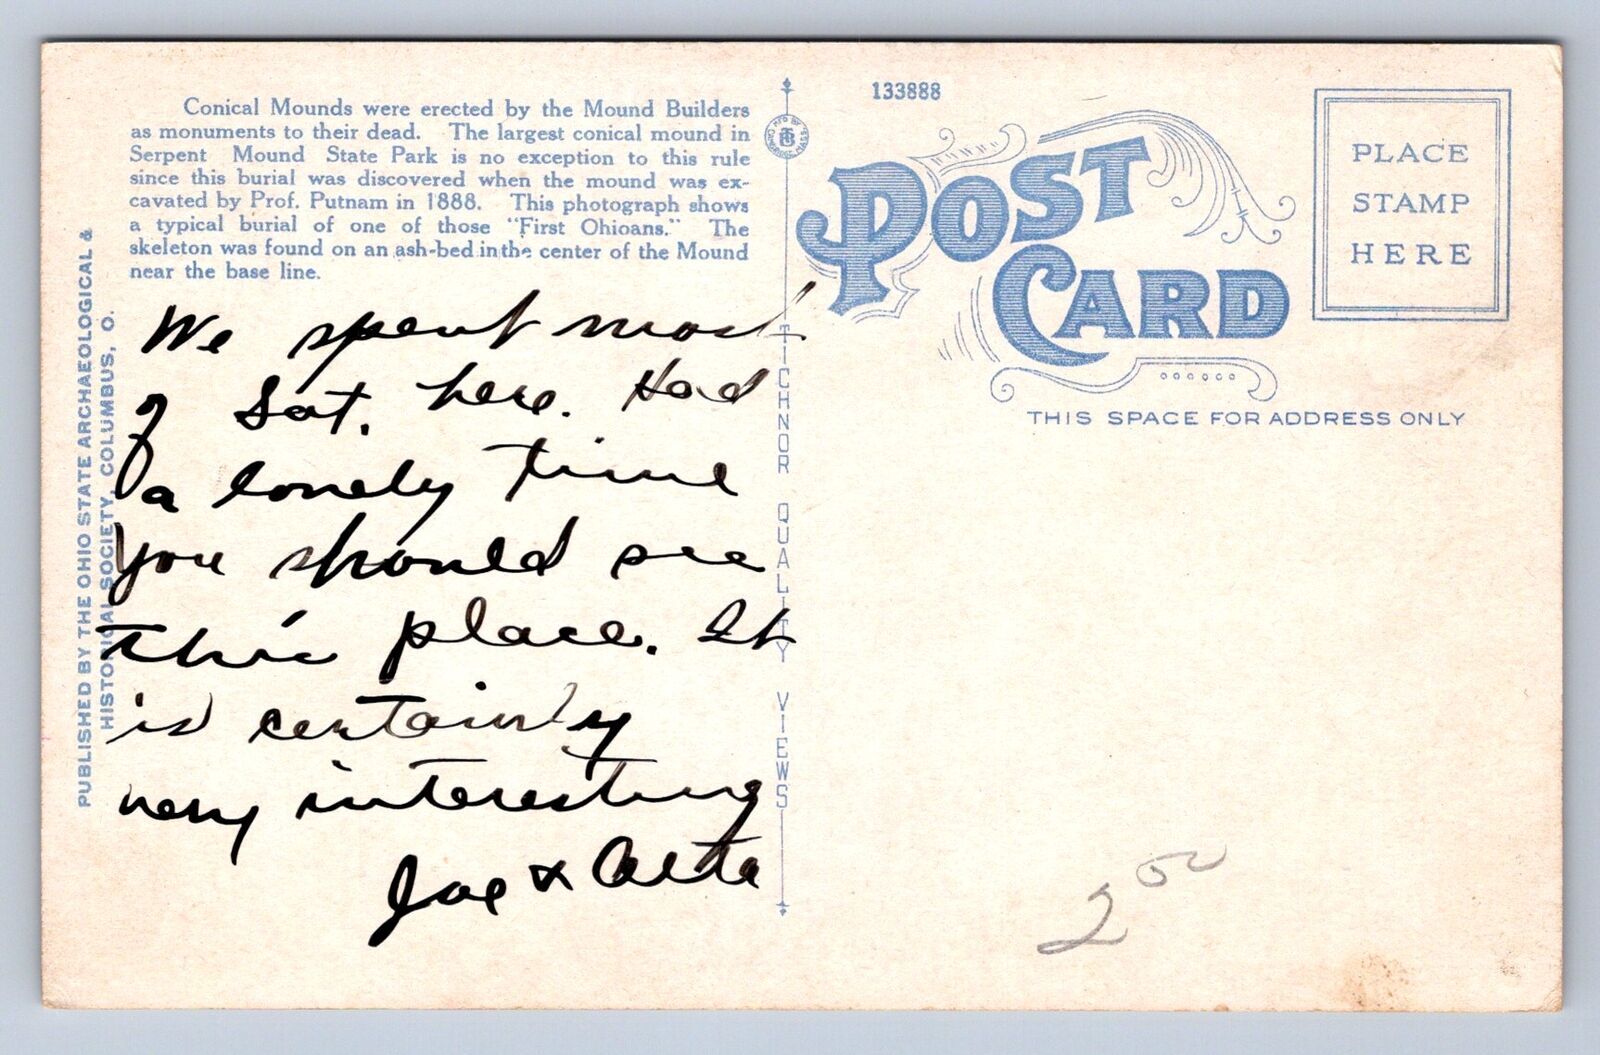 Conical Mounds were erected by the Mound Builders
as monuments to their dead. The largest conical mound in
Serpent Mound State Park is no exception to this rule
since this burial was discovered when the mound was ex-
cavated by Prof. Putnam in 1888. This photograph shows
a typical burial of one of those "First Ohioans." The
skeleton was found on an ash-bed in the center of the Mound
near the base line.
PUBLISHED BY THE OHIO STATE ARCHAEOLOGICAL &
HISTORICAL SOCIETY, COLUMBUS, O.
We spent most
of Sat. here. Had
a lonely time
You should see
this place. It
is certainly
very interesting
Joe &
MF'D BY
TB
CAMBRIDGE, MASS.
TICHNOR QUALITY VIEWS
133888
POST
CARD
PLACE
STAMP
HERE
THIS SPACE FOR ADDRESS ONLY
2 00